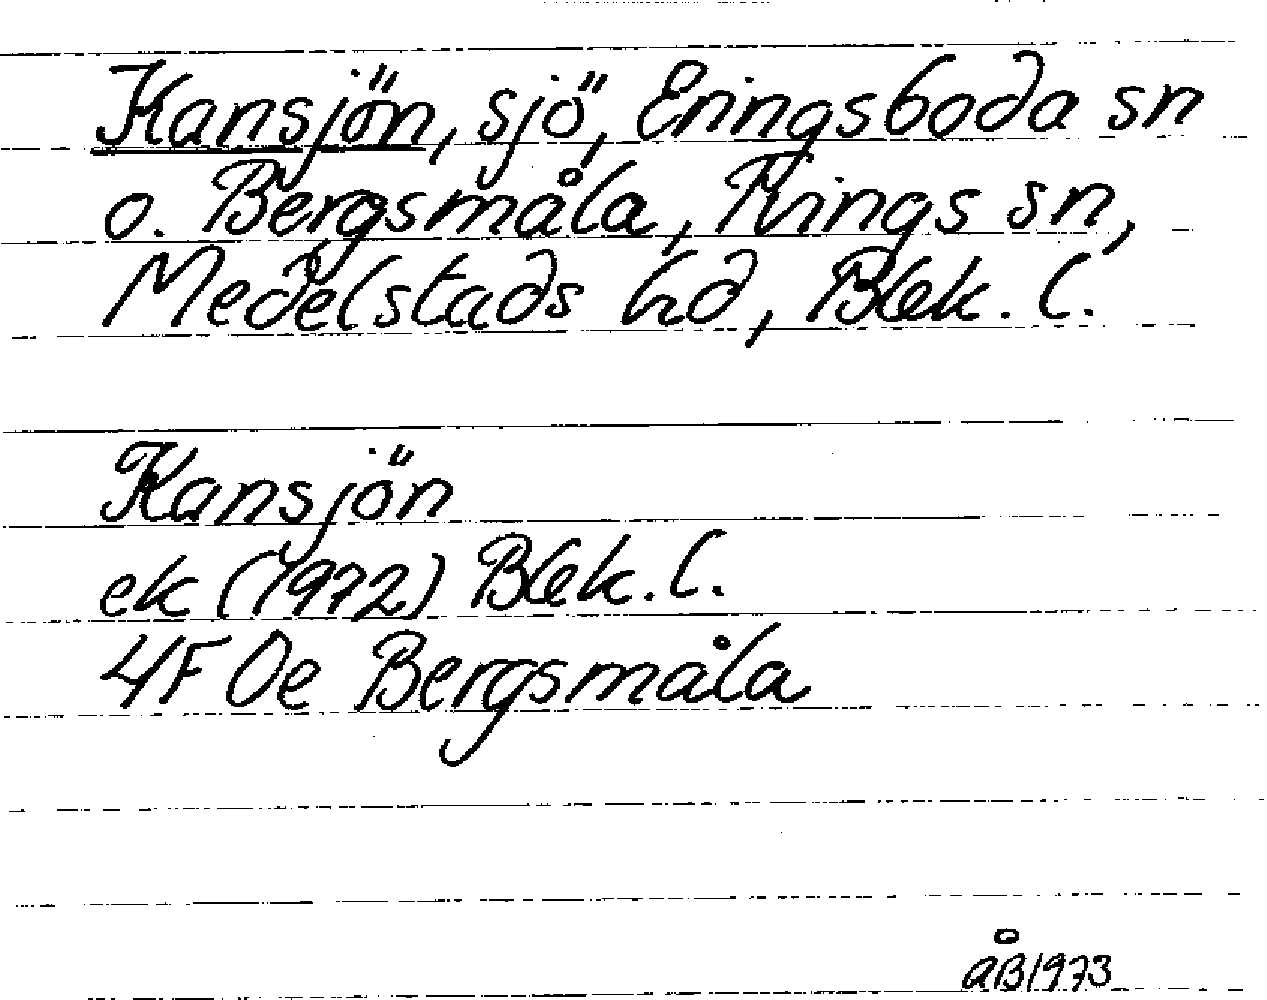 Kansjön, sjö, Eringsboda sn
o. Bergsmåla, Tvings sn,
Medelstads hd, Blek. l.
Kansjön
ek (1972) Blek. l.
4F 0e Bergsmåla
ÅB 1973